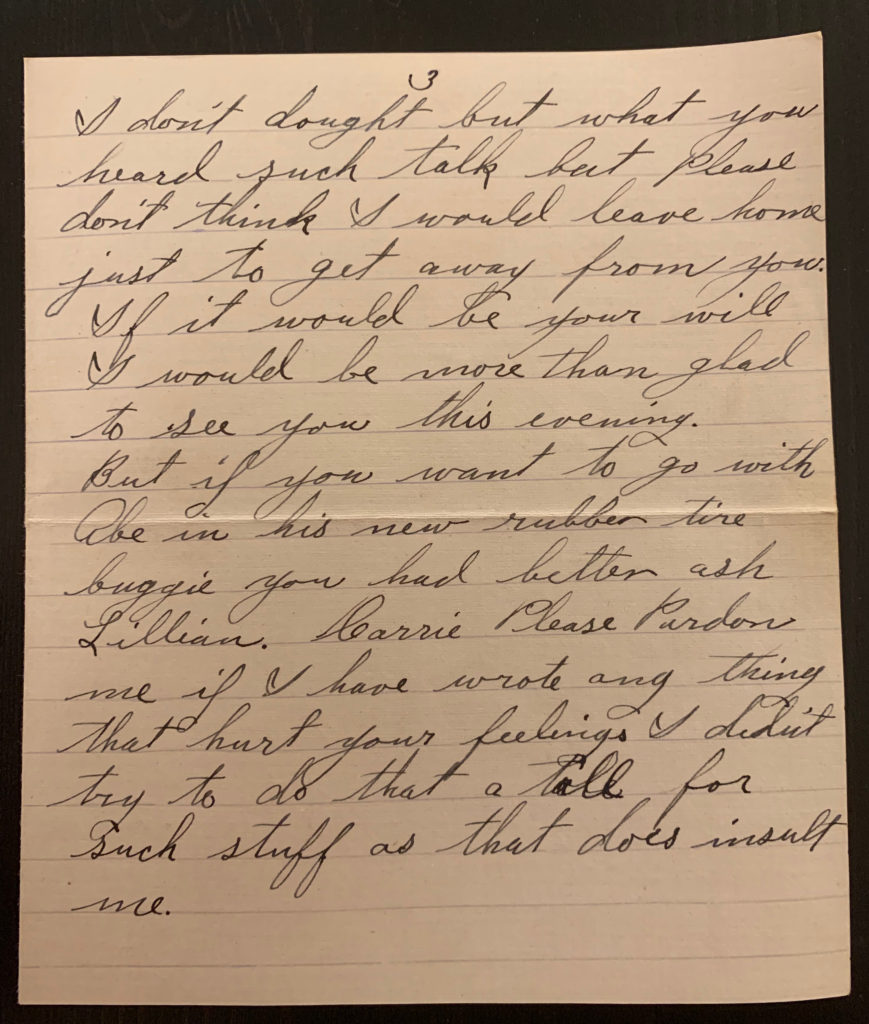 3
I don't dought but what you
heard such talk but Please
don't think I would leave home
just to get away from you.
If it would be your will
I would be more than glad
to see you this evening.
But if you want to go with
Abe in his new rubber tire
buggie you had better ask
Lillian. Carrie Please Pardon
me if I have wrote any thing
that hurt your feelings I didn't
try to do that a tall for
such stuff as that does insult
me.